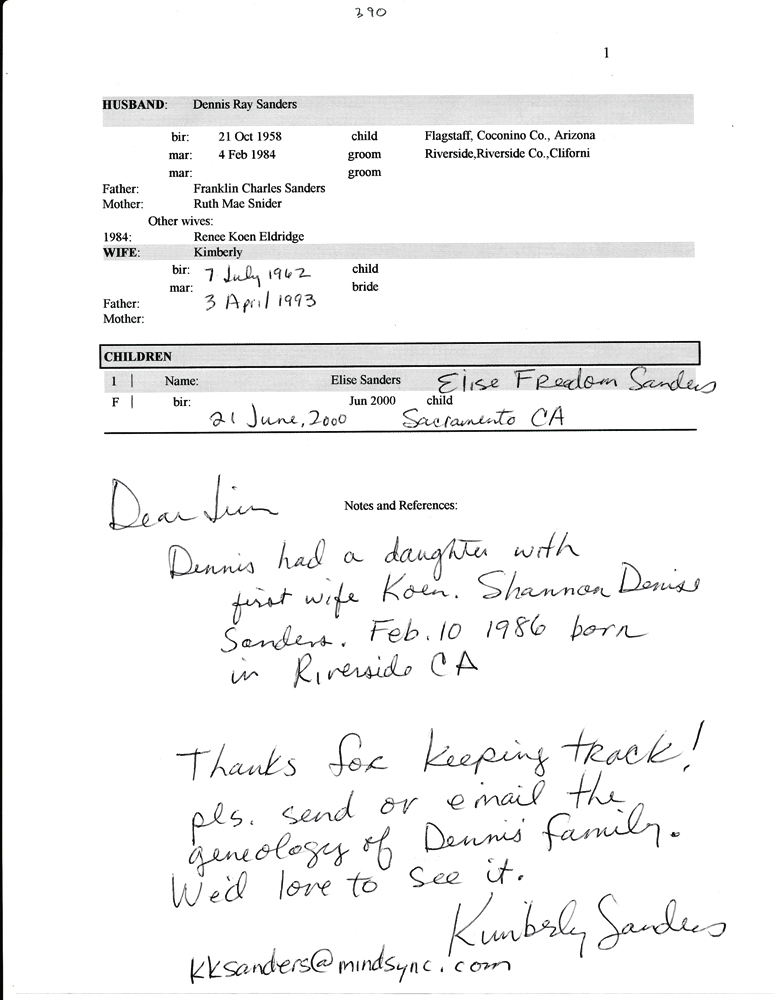 390
1
HUSBAND: Dennis Ray Sanders
bir: 21 Oct 1958 child Flagstaff, Coconino Co., Arizona
mar: 4 Feb 1984 groom Riverside,Riverside Co.,Cliforni
mar: groom
Father: Franklin Charles Sanders
Mother: Ruth Mae Snider
Other wives:
1984: Renee Koen Eldridge
WIFE: Kimberly
bir: 7 July 1962 child
mar: 3 April 1993 bride
Father:
Mother:
CHILDREN
1 | Name: Elise Sanders Elise Freedom Sanders
F | bir: Jun 2000 child
21 June, 2000 Sacramento CA
Dear Jim
Notes and References:
Dennis had a daughter with
first wife Koen. Shannon Denise
Sanders. Feb. 10 1986 born
in Riverside CA
Thanks for keeping track!
pls. send or email the
geneology of Dennis family.
We'd love to see it.
Kimberly Sanders
kksanders@mindsync.com